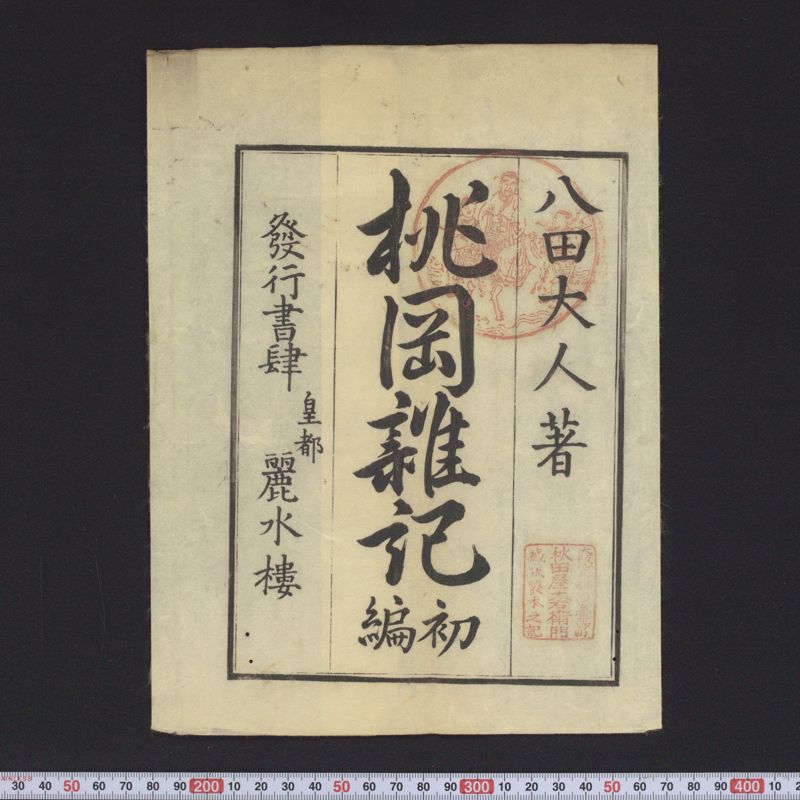 八田大人著
桃岡雜記
初編
發行書肆
皇都
麗水樓
秋田屋太右衛門
製本之記
STAINLESS
30 40 50 60 70 80 90 200 10 20 30 40 50 60 70 80 90 300 10 20 30 40 50 60 70 80 90 400 10